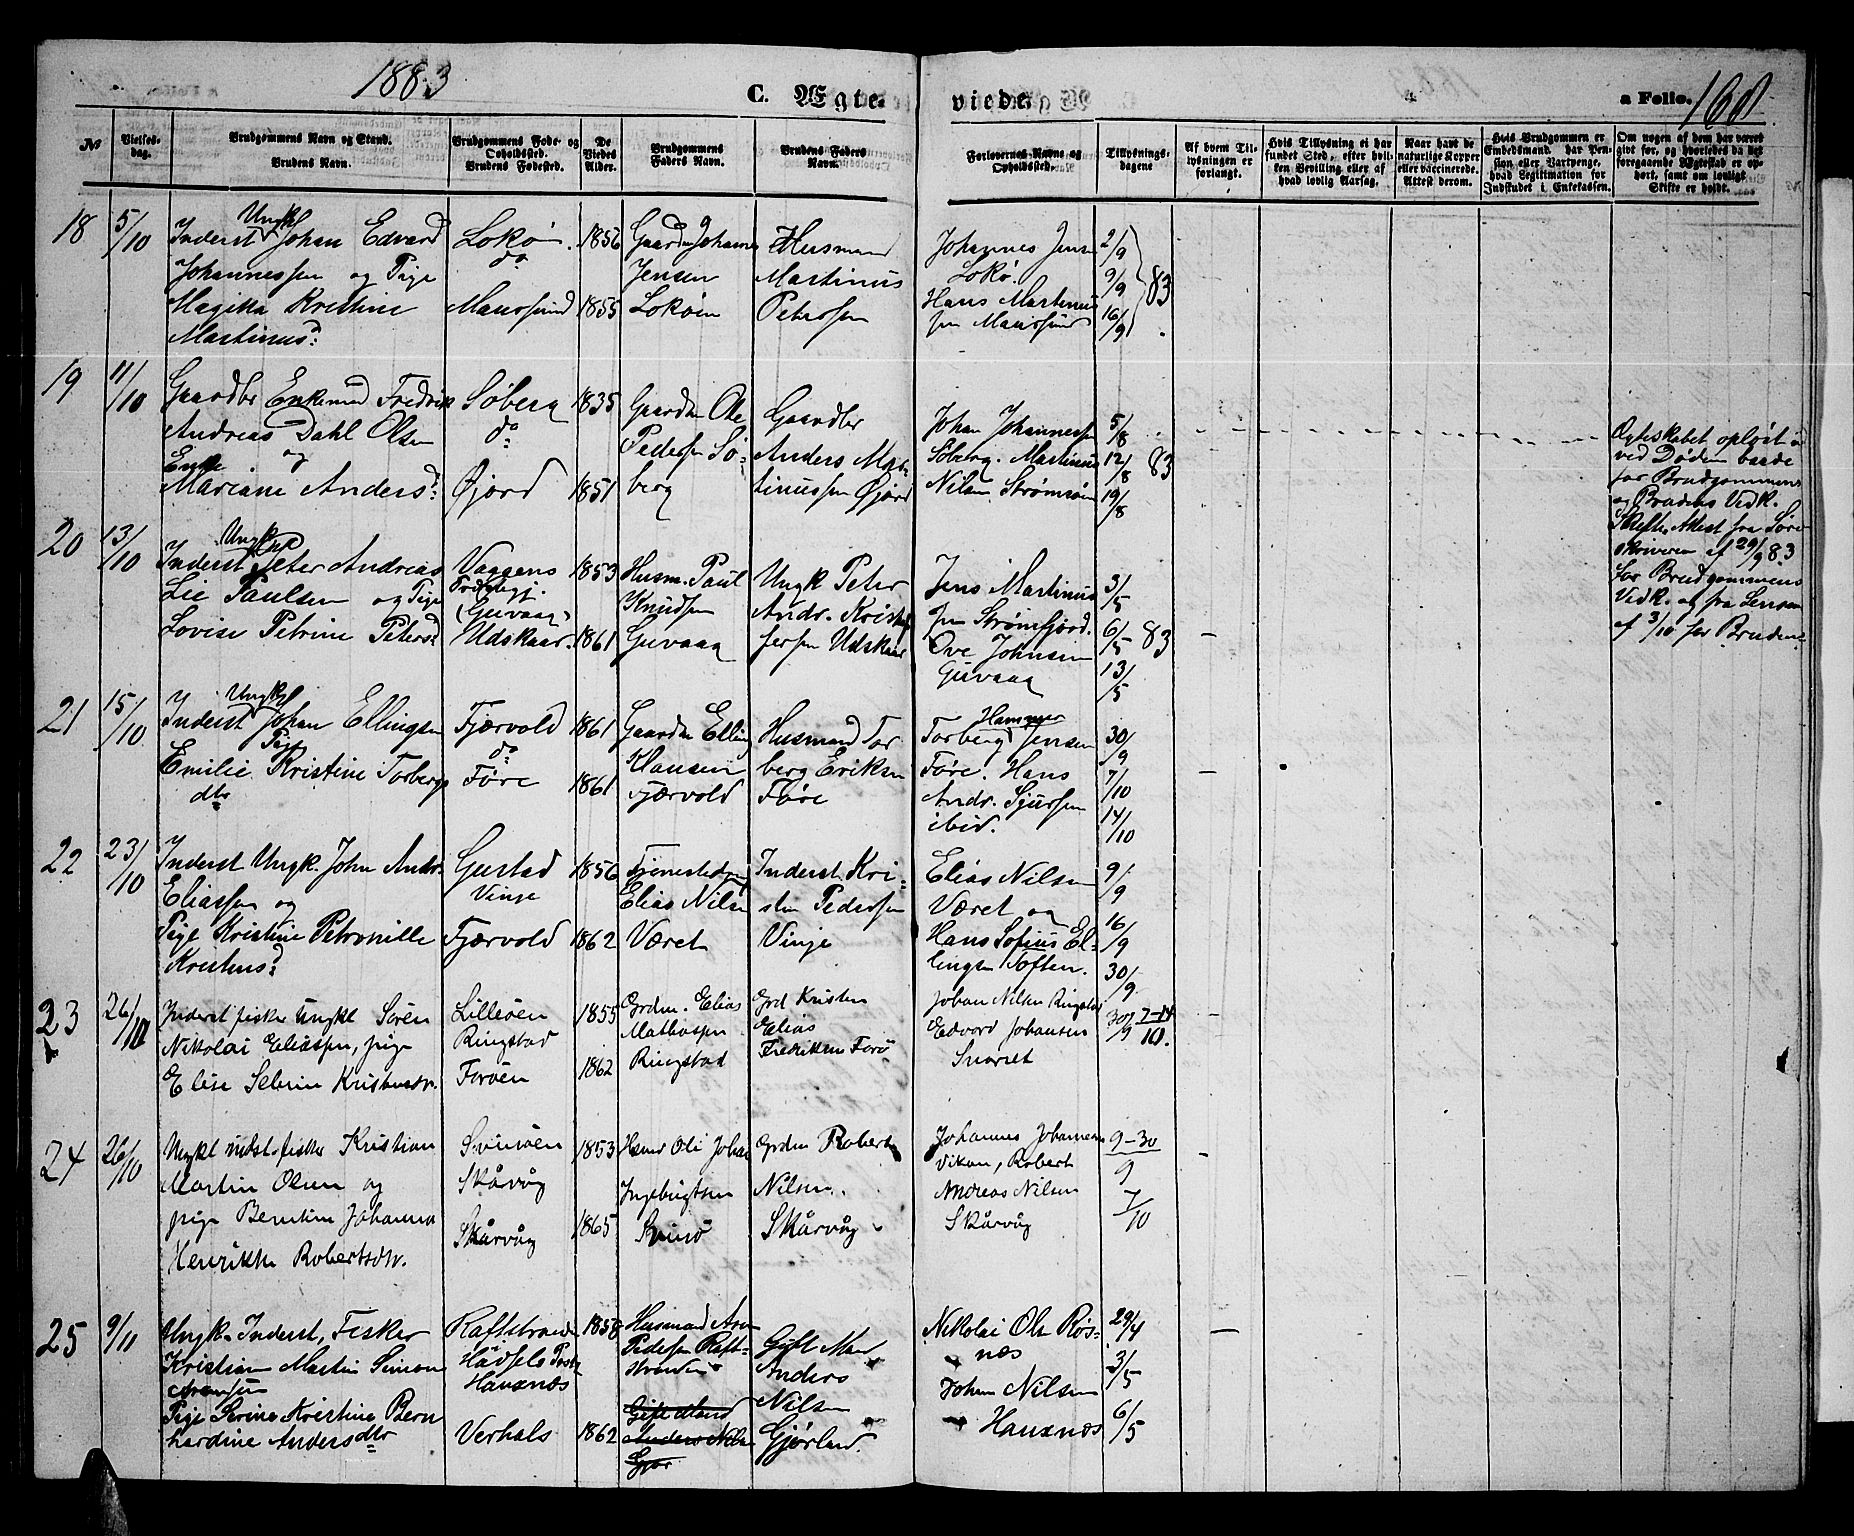 1883
C. Ægte-
viede.
a Folio. 160
№
Vielses-
dag.
Brudgommens Navn og Stand.
Brudens Navn.
Brudgommens Føde- og
Opholdssted.
Brudens Fødested.
De
Viedes
Alder.
Brudgommens
Faders Navn.
Brudens Faders
Navn.
Forlovernes Navne og
Opholdssted.
Tillysnings-
dagene
Af hvem Til-
lysningen er
forlangt.
Hvis Tillysning ei har
fundet Sted, efter hvil-
ken Bevilling eller af
hvad lovlig Aarsag.
Naar havt de
naturlige Kopper
eller vaccinerede.
Attest derom.
Hvis Brudgommen er
Embedsmand, har Pen-
sion eller Vartpenge,
hvad Legitimation for
Indskudet i Enkekassen.
Om nogen af dem har været
givt før, og hvorledes da det
foregaaende Ægteskab er op-
hørt, samt om lovligt
Skifte er holdt.
18
5/10
Ungk
Inderst Johan Edvard
Johannessen og Pige
Magika Kristine
Martinusd:
Lokø
do
Maursund
1856
1855
Gaardm Johannes
Jensen
Lokøen
Husmand
Martinus
Petersen
Johannes Jensen
Lokø.
Hans Martinus
sen Maursund
2/9
9/9
16/9
83
19
11/10
Gaardbr Enkemd Fredrik
Andreas Dahl Olsen
og
Enke
Mariane Andersd:
Søberg
do
Øjord
1835
1851
Gaardm Ole
Pedersen Sø-
berg
Gaardbr
Anders Mar-
tinussen Øjord
Johan Johannessen
Søberg. Martinus
Nilsen Strømsøen
5/8
12/8
19/8
83
Ægteskabet opløst
ved Døden baade
for Brudgommens
og Brudens Vedk.
Skifte Attest fra Sore
skriveren af 29/9 83
for Brudgommens
Vedk. og fra Lensm
af 3/10 for Bruden
20
13/10
Ungk
Inderst Peter Andreas
Lie Paulsen og Pige
Lovise Petrine Petersd:
Vaagens
(Guvaag)
Udskaar
1853
1861
Husm. Paul
Knudsen
Guvaag
Ungk Peter
Andr. Kristof
fersen Udskaar
Jens Martinus
sen Strømfjord.
Ove Johnsen
Guvaag
3/5
6/5
13/5
83
21
15/10
Ungk
Inderst Johan Ellingsen
Pige
Emilie Kristine Torbergs
dtr
Fjærvold
do
Føre
1861
1861
Gaardm Elling
Klausen
Fjærvold
Husmand Tor
berg Eriksen
Føre
Hammer
Torberg Jensen
Føre. Hans
Andr. Sjursen
ibid.
30/9
7/10
14/10
22
23/10
Inderst Ungk. John Andr.
Eliassen og
Pige Kristine Petronille
Kristensd:
Gustad
Vinje
Fjærvold
1856
1862
Elias Nilsen
Været
Inderst Kri-
sten Pedersen
Vinje
Elias Nilsen
Været og
Hans Sofius El-
lingsen Toften.
9/9
16/9
30/9
23
26/10
Inderst fisker Ungkl Søren
Nikolai Eliassen, pige
Elise Selerine Kristensdtr.
Lilleøen
Ringstad
Forøen
1855
1862
Grdm. Elias
Mathassen
Ringstad
Grd Kristen
Elias
Fredriksen Forø
Johan Nilsen Ringstad
Edvard Johansen
Svarret
30/9 7-14/10.
24
26/10
Ungkl indst. fisker Kristian
Martin Olsen og
pige Berntine Johanna
Henrikke Robertsdtr.
Svinøen
Skårvåg
Skårvåg
1853
1865
Hsmd Ole Johan
Ingebrigtsen
Svinø
Grdm Robert
Nilsen.
Skårvåg
Johannes Johannesen
Vikan, Robert
Andreas Nilsen
Skårvåg
9-30/9
7/10
25
9/11
Ungk. Inderst, Fisker
Kristian Martin Simon
Aronsen
Pige Serine Kristine Bern
hardine Andersdtr
Raftstranden
Hadsels Præstg
Hauknæs
Verhals
1858
1862
Husmand Aron
Pedersen Raft-
stranden
Gift Mand
Anders Nilsen
Gjør
Gift Mand
Anders
Nilsen
Gjørland.
Nikolai Ols Røs-
næs
Johan Nilsen
Hauknæs
29/4
3/5
6/5